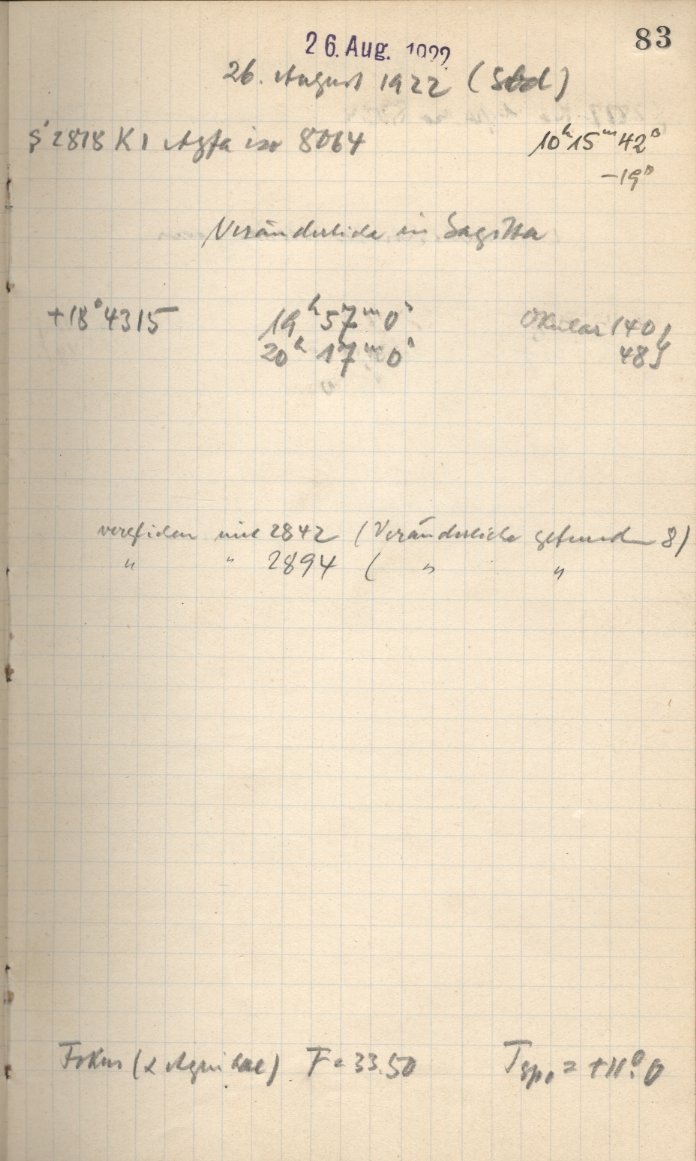 83
26. Aug. 1922
26. August 1922 (Sbd)
2818 K1 Agfa iso 8064 10h 15m 42s
-19s
Veränderliche in Sagitta
+18°4315 19h 57m 0s Okular 140
20h 17m 0s 48
verglichen mit 2842 (Veränderliche gefunden 8)
" " 2894 ( " "
Fokus (α Aquilae) F = 33.50 T = +11°.0